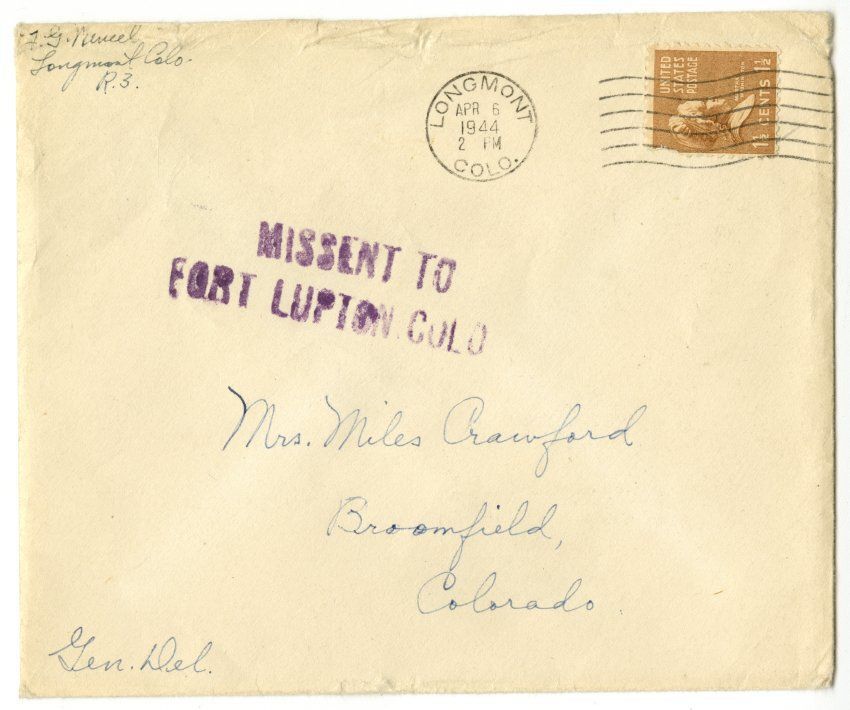 Longmont Colo.
R.3.
LONGMONT
APR 6
1944
2 PM
COLO.
UNITED
STATES
POSTAGE
1½ CENTS 1½
MISSENT TO
FORT LUPTON.COLO
Mrs. Miles Crawford
Broomfield,
Colorado.
Gen. Del.